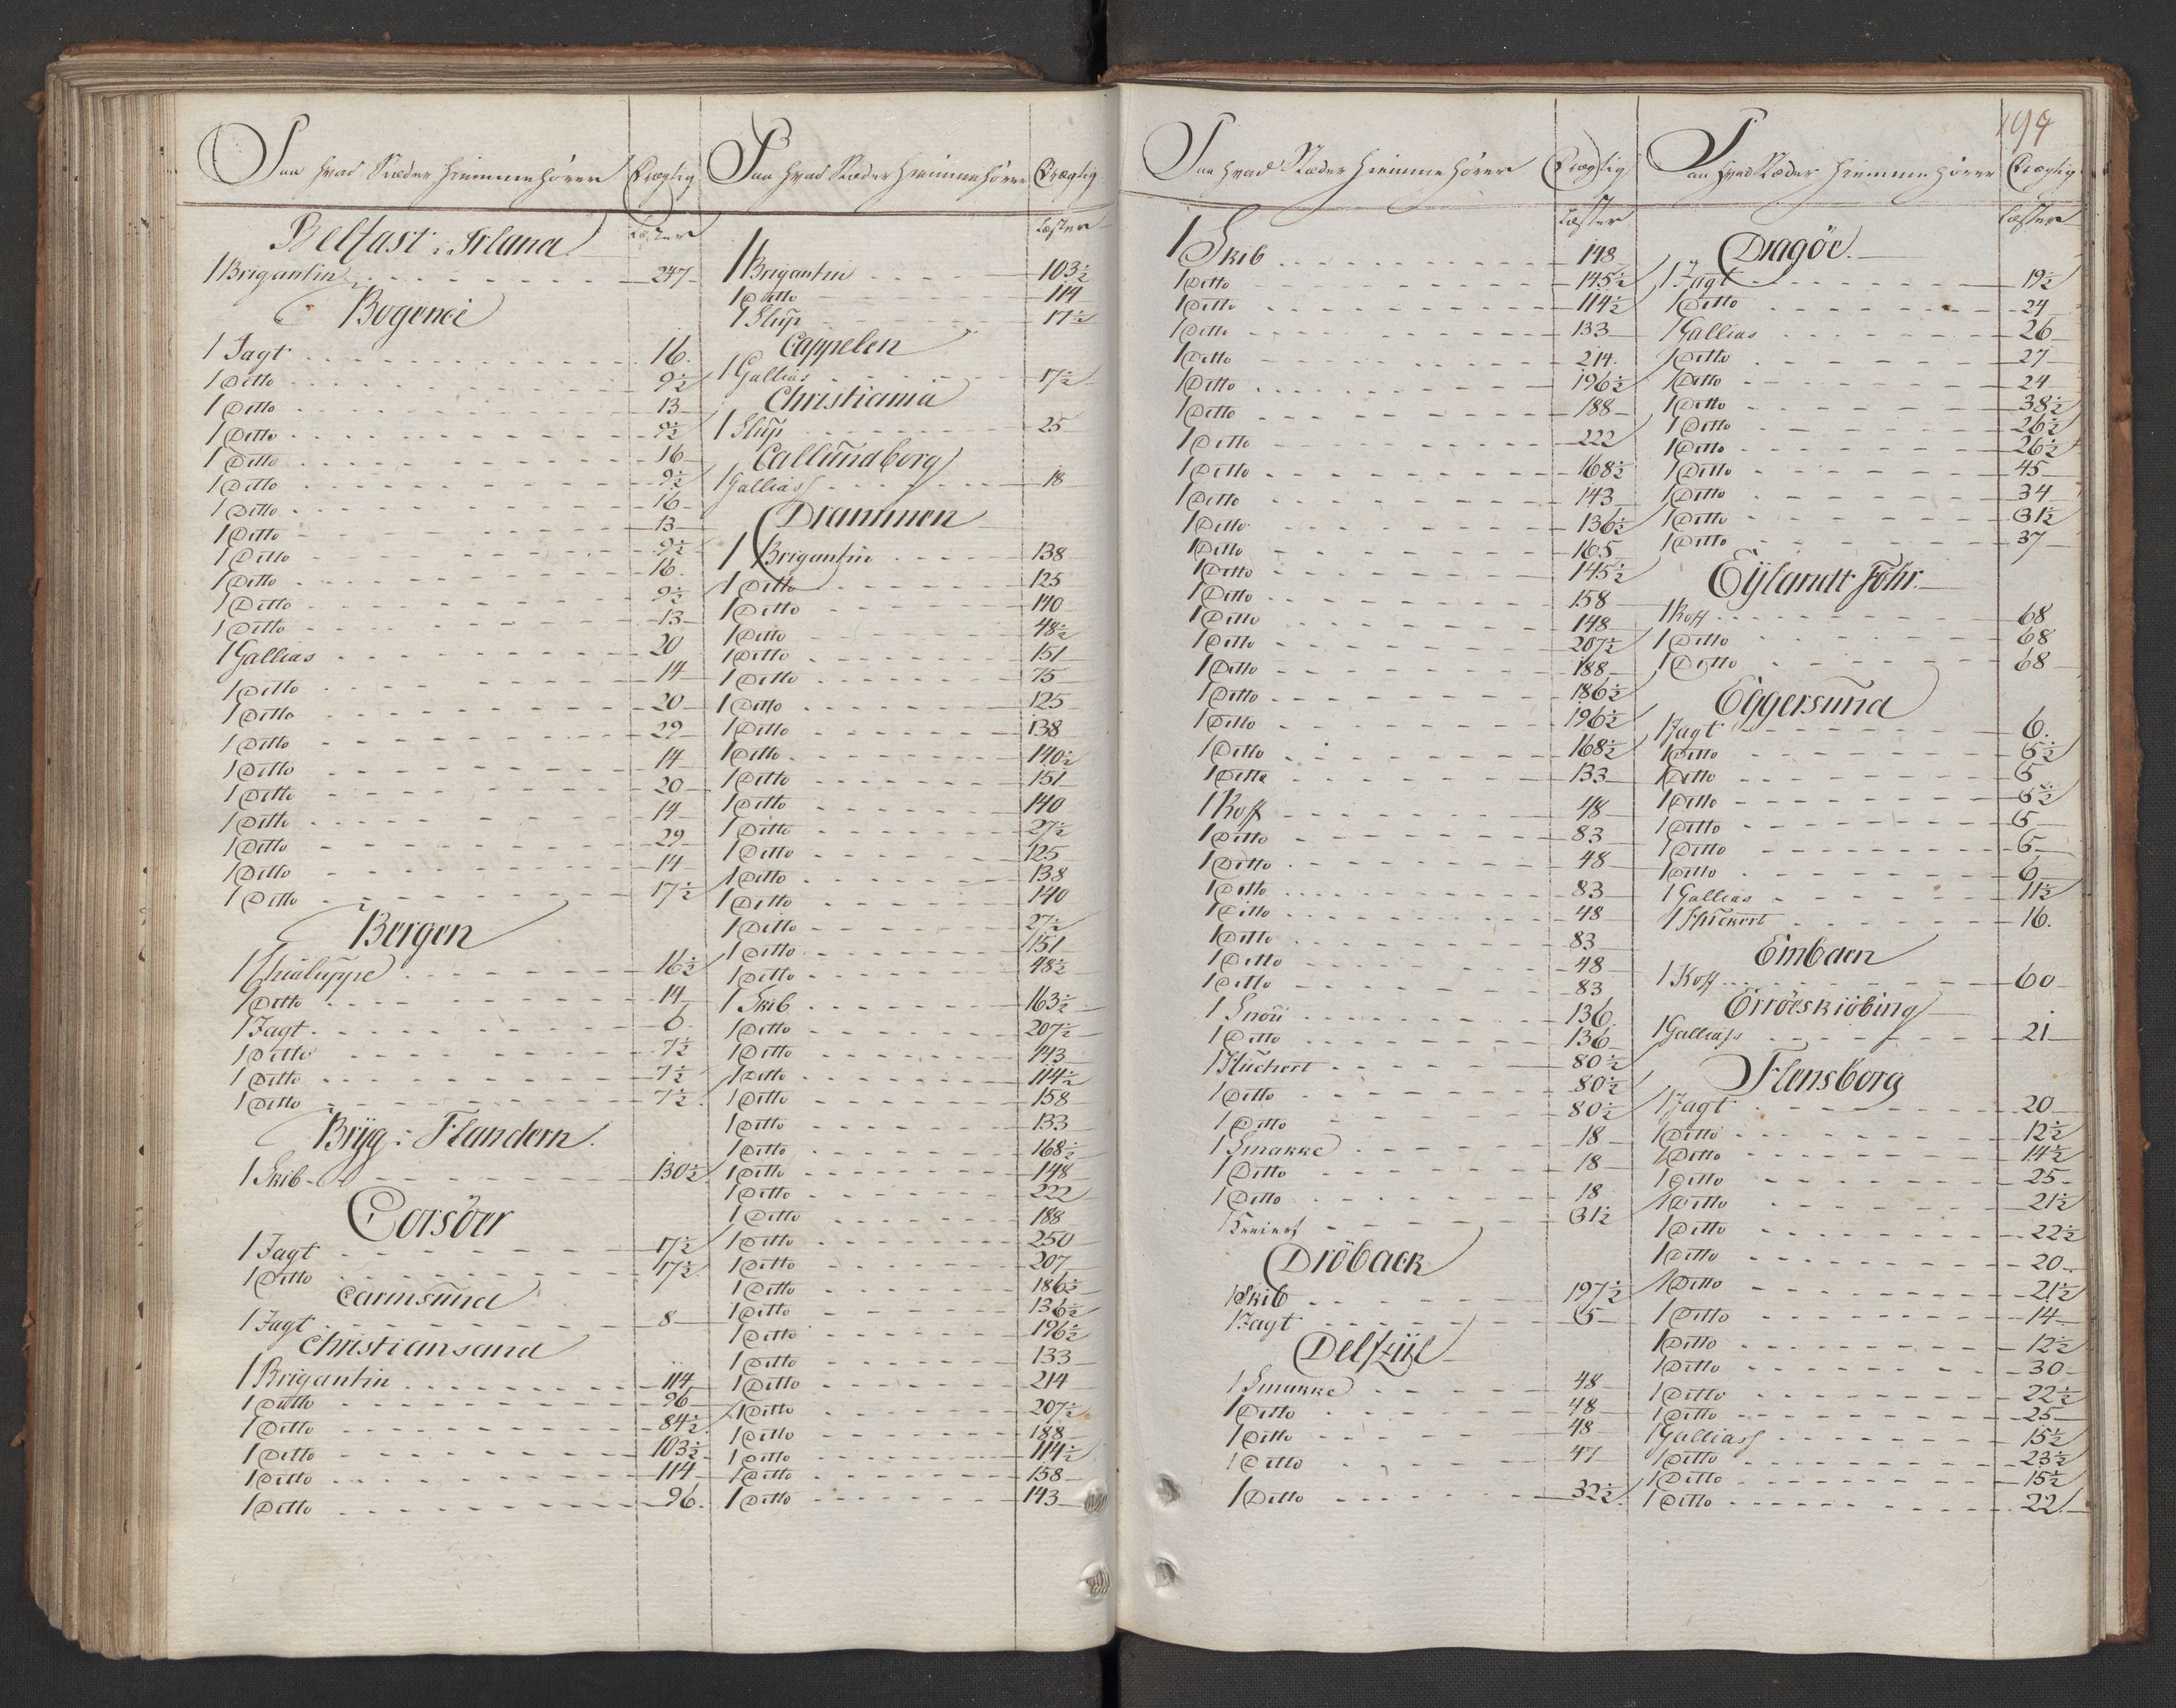 194
Paa hvad Stæder hiemmehörer Drægtig
Læster
Belfast i Irland
1 Brigantin 247
Bogense
1 Jagt 16.
1 Ditto 9½
1 Ditto 13
1 Ditto 9½
1 Ditto 16
1 Ditto 9½
1 Ditto 16
1 Ditto 13
1 Ditto 9½
1 Ditto 16.
1 Ditto 9½
1 Ditto 13
1 Gallias 20
1 Ditto 14
1 Ditto 20
1 Ditto 29
1 Ditto 14
1 Ditto 20
1 Ditto 14
1 Ditto 29
1 Ditto 14
1 Ditto 17½
Bergen
1 Chaluppe 16½
1 Ditto 14
1 Jagt 6.
1 Ditto 7½
1 Ditto 7½
1 Ditto 7½
Bryg i Flandern.
1 Skib 130½
Corsöer
1 Jagt 17½
1 Ditto 17½
Carmsund
1 Jagt 8
Christiansand
1 Brigantin 114
1 Ditto 96
1 Ditto 84½
1 Ditto 103½
1 Ditto 114
1 Ditto 96.
Paa hvad Stæder hiemmehörer Drægtig
Læster
1 Brigantin 103½
1 Ditto 114
1 Slup 17½
Cappelen
1 Gallias 17½
Christiania
1 Slup 25
Callundborg
1 Galliass 18
Drammen
1 Brigantin 138
1 Ditto 125
1 Ditto 140
1 Ditto 48½
1 Ditto 151
1 Ditto 75
1 Ditto 125
1 Ditto 138
1 Ditto 140½
1 Ditto 151
1 Ditto 140
1 Ditto 27½
1 Ditto 125
1 Ditto 138
1 Ditto 140
1 Ditto 27½
1 Ditto 151
1 Ditto 48½
1 Skib 163½
1 Ditto 207½
1 Ditto 143
1 Ditto 114½
1 Ditto 158
1 Ditto 133
1 Ditto 168½
1 Ditto 148
1 Ditto 222
1 Ditto 188
1 Ditto 250
1 Ditto 207
1 Ditto 186½
1 Ditto 136½
1 Ditto 196½
1 Ditto 133
1 Ditto 214
1 Ditto 207½
1 Ditto 188
1 Ditto 114½
1 Ditto 158
1 Ditto 143
Paa hvad Stæder hiemmehörer Drægtig
Læster
1 Skib 148
1 Ditto 145½
1 Ditto 114½
1 Ditto 133
1 Ditto 214.
1 Ditto 196½
1 Ditto 188
1 Ditto 222
1 Ditto 168½
1 Ditto 143
1 Ditto 136½
1 Ditto 165
1 Ditto 145½
1 Ditto 158
1 Ditto 148
1 Ditto 207½
1 Ditto 188
1 Ditto 186½
1 Ditto 196½
1 Ditto 168½
1 Ditto 133
1 Koff 48
1 Ditto 83
1 Ditto 48
1 Ditto 83
1 Ditto 48
1 Ditto 83
1 Ditto 48
1 Ditto 83
1 Snou 136
1 Ditto 136
1 Huchert 80½
1 Ditto 80½
1 Ditto 80½
1 Smakke 18
1 Ditto 18
1 Ditto 18
1 Kreiert 31½
Dröback
1 Skib 197½
1 Jagt 5
Delfziil
1 Smakke 48
1 Ditto 48
1 Ditto 48
1 Ditto 47
1 Ditto 32½
Paa hvad Stæder hiemmehörer Drægtig
Læster
Dragöe
1 Jagt 19½
1 Ditto 24
1 Gallias 26
1 Ditto 27
1 Ditto 24
1 Ditto 38½
1 Ditto 26½
1 Ditto 26½
1 Ditto 45
1 Ditto 34
1 Ditto 31½
1 Ditto 37
Eylandt Föhr.
1 Koff 68
1 Ditto 68
1 Ditto 68
Eggersund
1 Jagt 6.
1 Ditto 5½
1 Ditto 5
1 Ditto 5½
1 Ditto 5
1 Ditto 6
1 Ditto 6
1 Gallias 11½
1 Huckert 16.
Embden
1 Koff 60
Erröeskiöbing
1 Galliass 21
Flensborg
1 Jagt 20
1 Ditto 12½
1 Ditto 14½
1 Ditto 25
1 Ditto 21½
1 Ditto 22½
1 Ditto 20
1 Ditto 21½
1 Ditto 14
1 Ditto 12½
1 Ditto 30
1 Ditto 22½
1 Ditto 25
1 Galliass 15½
1 Ditto 23½
1 Ditto 15½
1 Ditto 22